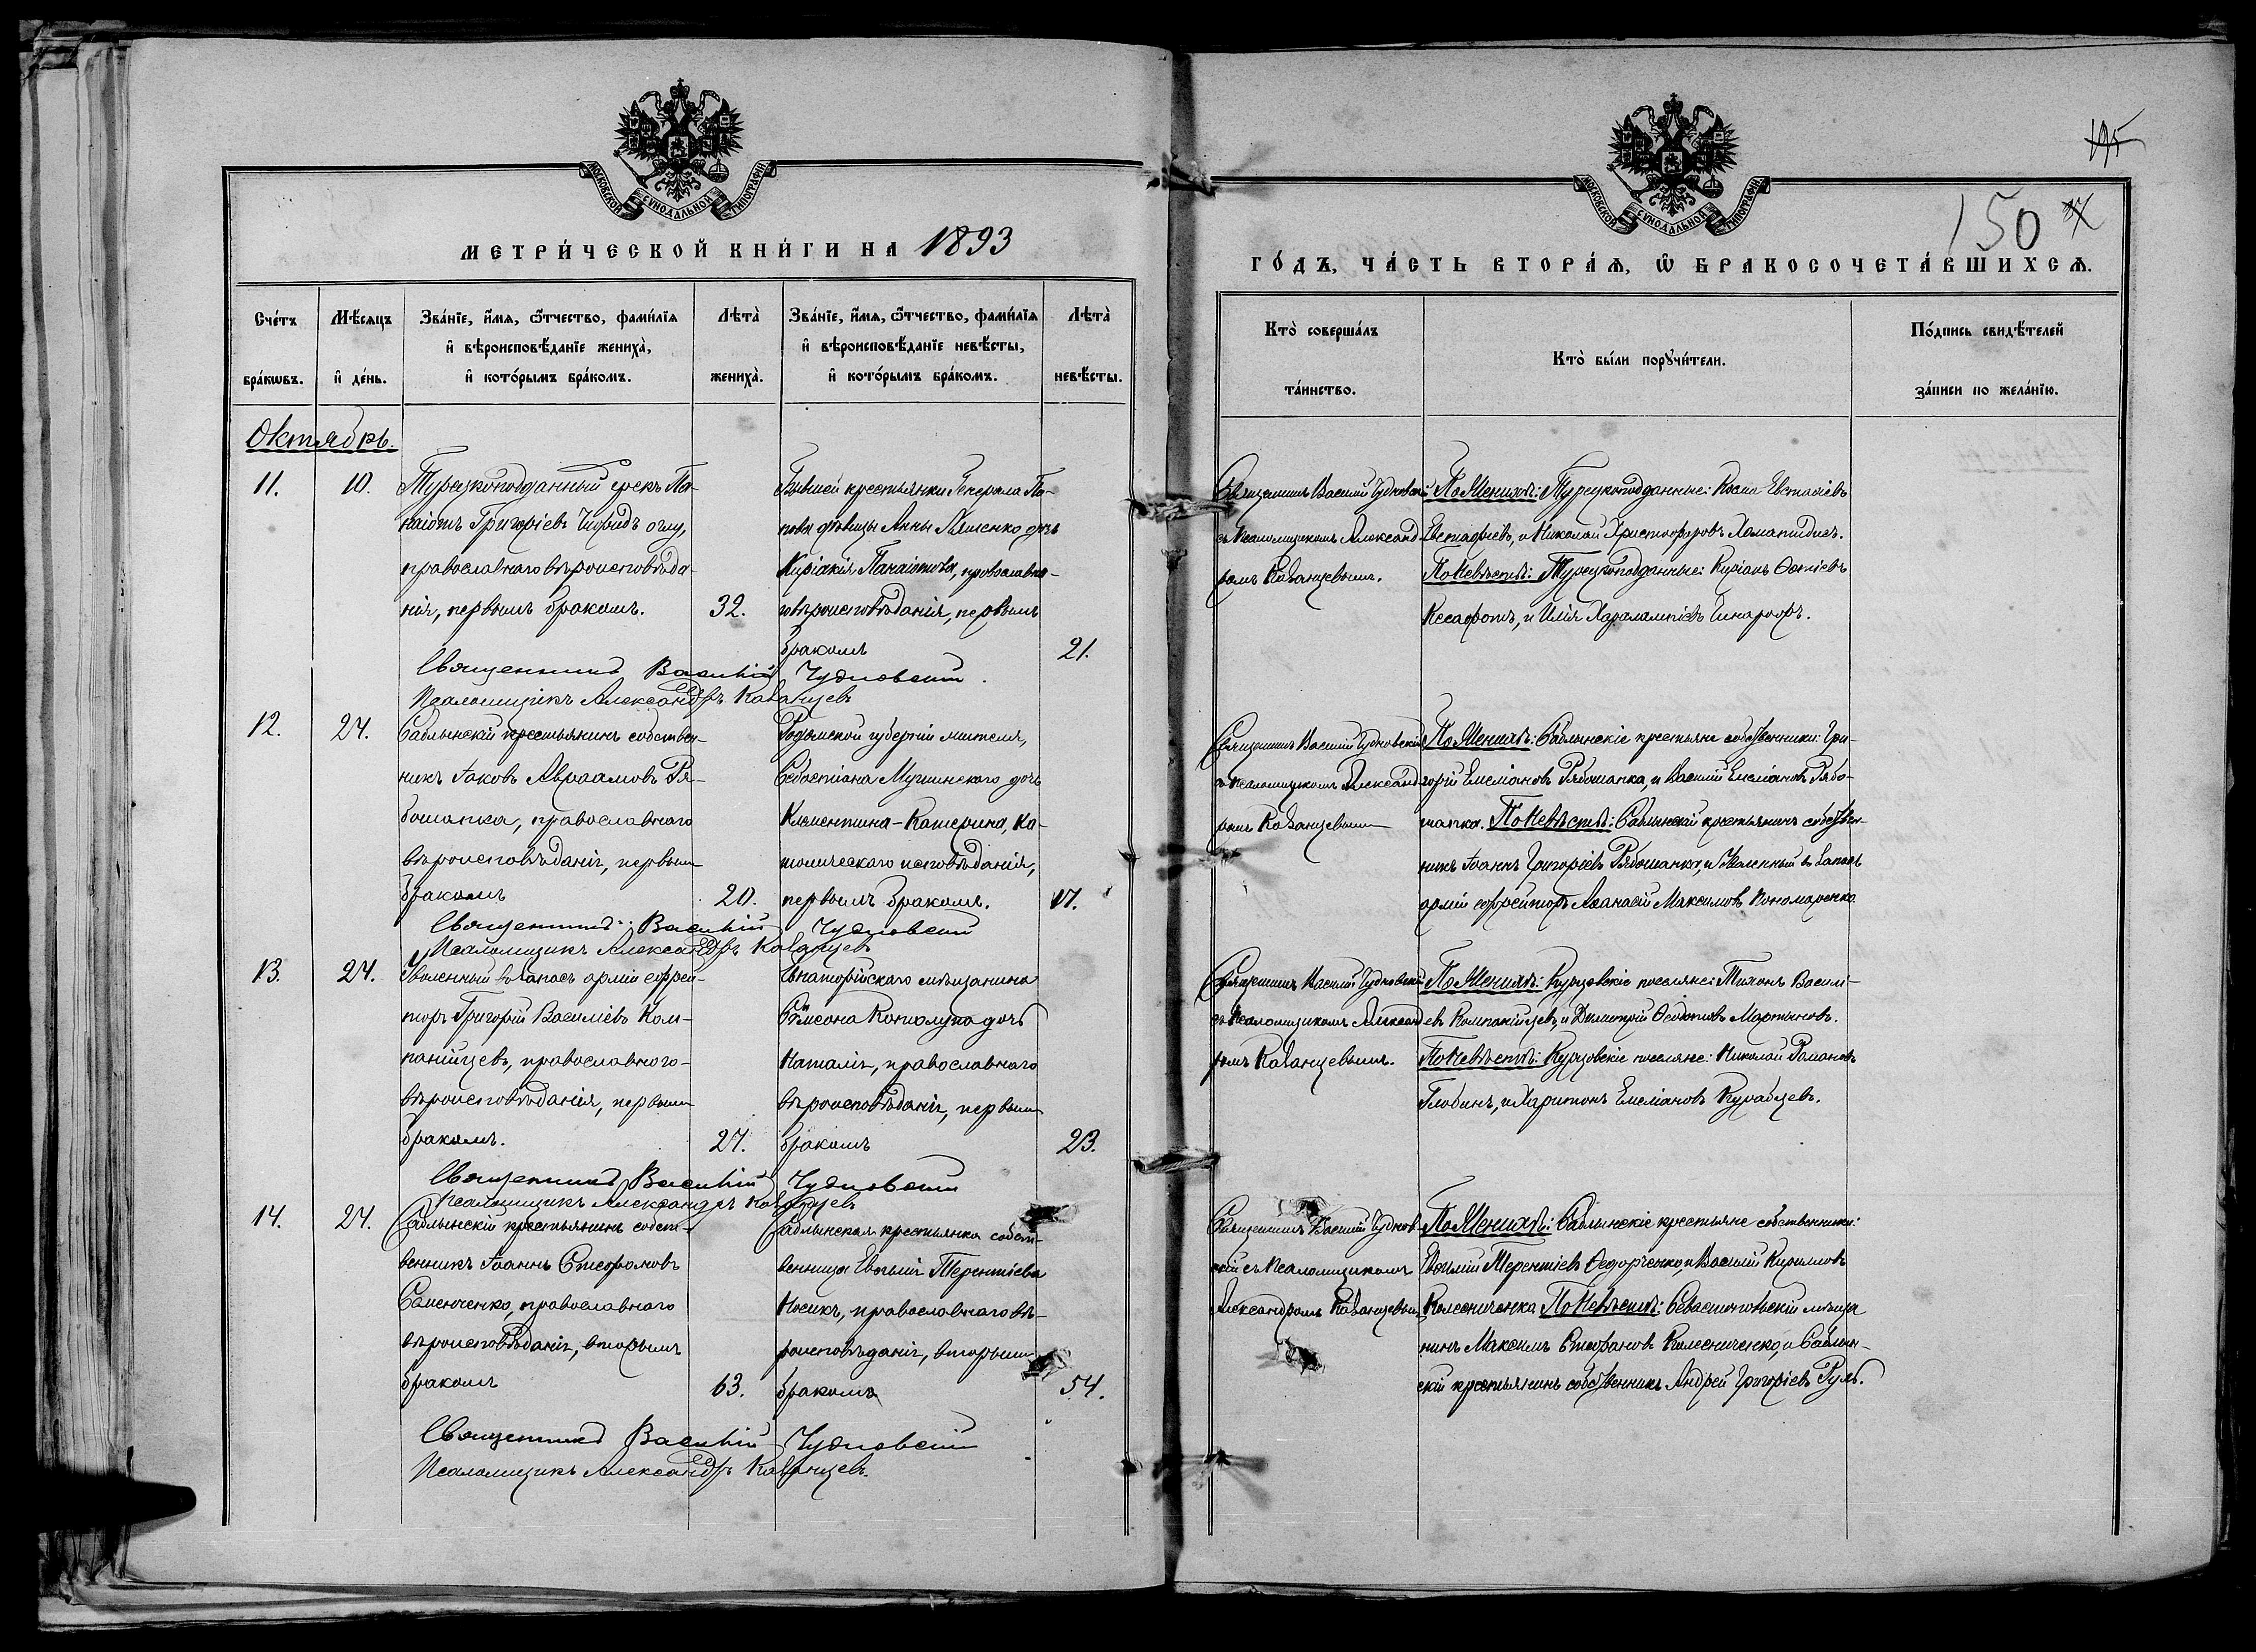 МОСКОВСКОЙ СУНОДАЛЬНОЙ ТИПОГРАФІИ.
МЕТРИ́ЧЕСКОЙ КНИ́ГИ НА 1893
Сче́тъ бра́кωвъ.
Мѣ́сяцъ и҆ де́нь.
Зва́нїе, и҆́мѧ, ѻ҆́тчество, фами́лїѧ
и҆ вѣроисповѣ́данїе жениха̀,
и҆ кото́рымъ бра́комъ.
Лѣта̀ жениха̀.
Зва́нїе, и҆́мѧ, ѻ҆́тчество, фами́лїѧ
и҆ вѣроисповѣ́данїе невѣ́сты,
и҆ кото́рымъ бра́комъ.
Лѣта̀ невѣ́сты.
Октябрь.
11.
10.
Турецкоподданный грекъ Па-
наіотъ Григоріевъ оглу,
православнаго вѣроисповѣда-
нія, первымъ бракомъ.
32.
Бывшей крестьянки Генерала По-
пова дѣвицы Анны Ляшенко дочь
Киріакія Панаіотова, православна-
го вѣроисповѣданія, первымъ
бракомъ
21.
Священникъ Василій Чудновскій.
Псаломщикъ Александръ Казанцевъ
12.
24.
Саблынскій крестьянинъ собствен-
никъ Іаковъ Авраамовъ Ря-
бошапка, православнаго
вѣроисповѣданія, первымъ
бракомъ
20.
губерніи жителя,
Севастіана дочь
Клементина-Катерина, ка-
толическаго исповѣданія,
первымъ бракомъ.
17.
Священникъ Василій Чудновскій
Псаломщикъ Александръ Казанцевъ
13.
24.
Уволенный въ запасъ арміи ефрей-
торъ Григорій Василіевъ Ком-
панійцевъ, православнаго-
вѣроисповѣданія, первымъ
бракомъ.
27.
Евпаторійскаго мѣщанина
дочь
Наталія, православнаго
вѣроисповѣданія, первымъ
бракомъ
23.
Священникъ Василій Чудновскій
Псаломщикъ Александръ Казанцевъ
14.
24.
Саблынскій крестьянинъ собст-
венникъ Іоаннъ Стефановъ
Семенченко, православнаго
вѣроисповѣданія, вторымъ
бракомъ
63.
Саблынская крестьянка собст-
венница Евѳимія Терентіева
Носикъ, православнаго вѣ-
роисповѣданія, вторымъ
бракомъ
54.
Священникъ Василій Чудновскій
Псаломщикъ Александръ Казанцевъ.
МОСКОВСКОЙ СУНОДАЛЬНОЙ ТИПОГРАФІИ.
150
ГО́ДЪ, ЧА́СТЬ ВТОРА́Ѧ, Ѽ БРАКОСОЧЕТА́ВШИХСѦ.
Кто̀ соверша́лъ та́инство.
Кто̀ бы́ли порꙋчи́тели.
По́дпись свидѣ́телей за́писи по жела́нїю.
Священникъ Василій Чудновскій
съ Псаломщикомъ Александ-
ромъ Казанцевымъ.
По Женихѣ: Турецкоподданные: Косма Евстафіевъ
Евстафіевъ, и Николай Христофоровъ
По Невѣстѣ: Турецкоподданные: Ѳотіевъ
и Илія Харалампіевъ
Священникъ Василій Чудновскій
съ Псаломщикомъ Александ-
ромъ Казанцевымъ
По Женихѣ: Саблынскіе крестьяне собственники: Гри-
горій Емеліановъ Рябошапка, и Василій Емеліановъ Рябо-
шапка. По Невѣстѣ: Саблынскій крестьянинъ собствен-
никъ Іоаннъ Григоріевъ Рябошапка, и Уволенный въ запасъ
арміи ефрейторъ Аѳанасій Максимовъ Пономаренко
Священникъ Василій Чудновскій
съ Псаломщикомъ Александ-
ромъ Казанцевымъ.
По Женихѣ: Курцовскіе поселяне: Тихонъ Васили-
евъ Компанійцевъ, и Димитрій Ѳеодотовъ Мартыновъ.
По Невѣстѣ: Курцовскіе поселяне: Николай Романовъ
Глобинъ, и Харитонъ Емеліановъ
Священникъ Василій Чуднов-
скій съ Псаломщикомъ
Александромъ Казанцевымъ
По Женихѣ: Саблынскіе крестьяне собственники:
Евѳимій Терентіевъ Ѳедорченко, и Василій Кириловъ
Колесниченко. По Невѣстѣ: Севастопольскій мѣща
нинъ Максимъ Стефановъ Колесниченко, и Саблын-
скій крестьянинъ собственникъ Андрей Григоріевъ Руль.